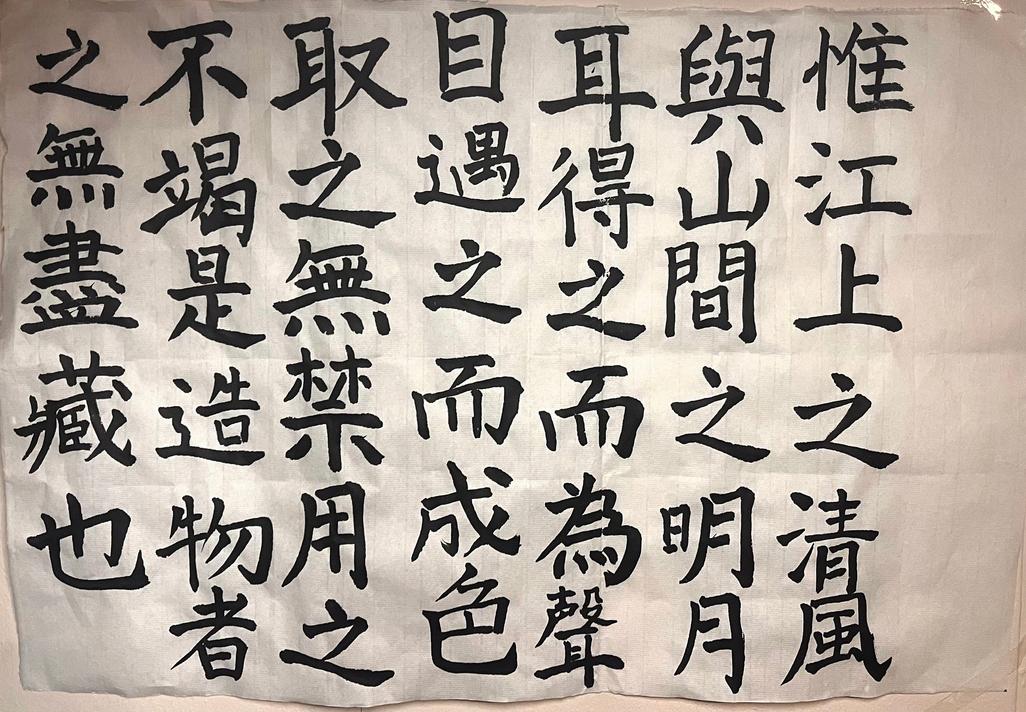 惟江上之清風
與山間之明月
耳得之而為聲
目遇之而成色
取之無禁用之
不竭是造物者
之無盡藏也